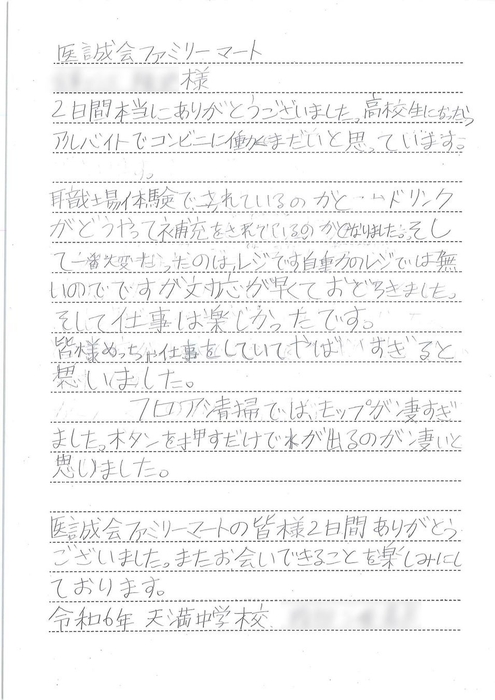 医誠会ファミリーマート
様
2日間本当にありがとうございました。高校生になったら
アルバイトでコンビニに働くまだいと思っています。
職場体験でされているのかと ドリンク
がどうやって補充をされているのかとなりました。そし
て一番大変だったのは、レジです自動のレジでは無
いのでですが対応が早くておどろきました。
そして仕事は楽しかったです。
皆様めっちゃ仕事をしていてやば すぎると
思いました。
フロア清掃では、モップが凄すぎ
ました。ボタンを押すだけで水が出るのが凄いと
思いました。
医誠会ファミリーマートの皆様2日間ありがとう
ございました。またお会いできることを楽しみにし
ております。
令和6年 天満中学校